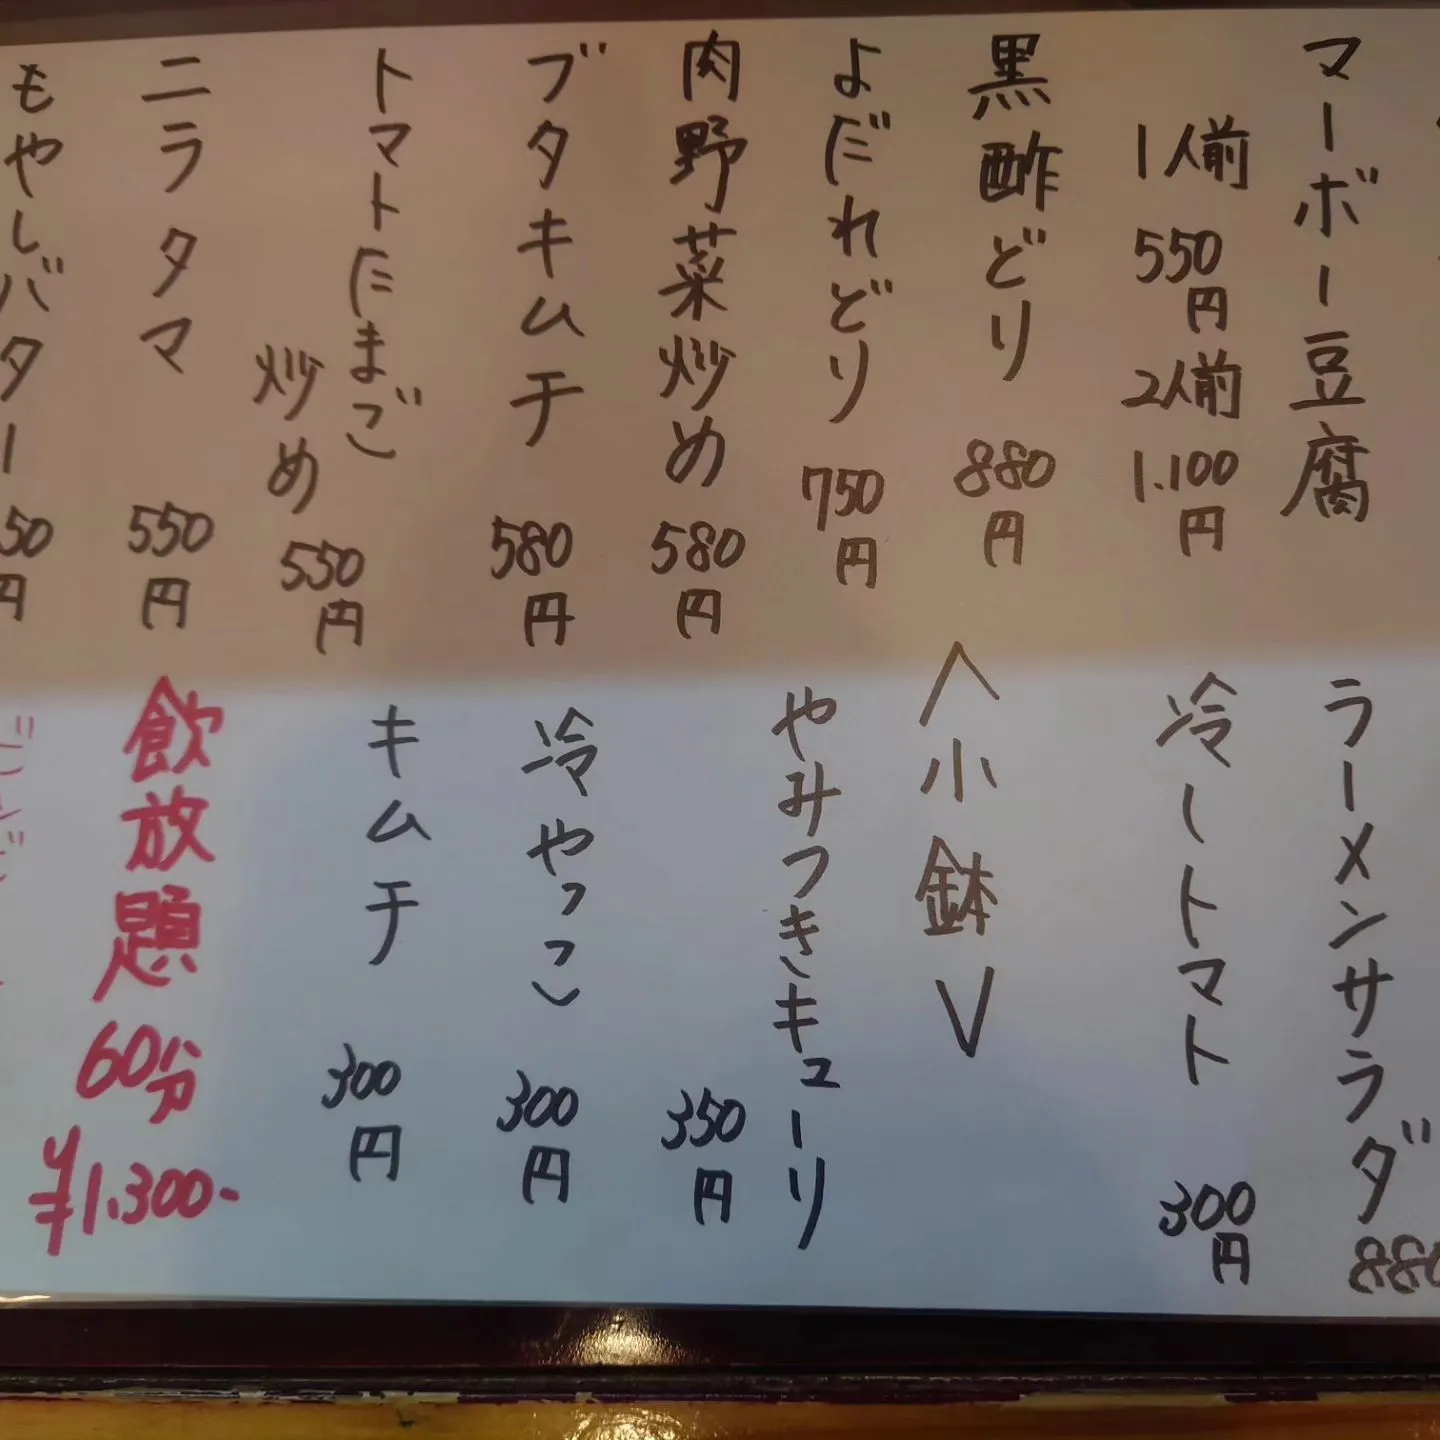 マーボー豆腐
1人前 550円 2人前 1.100円
黒酢どり 880円
よだれどり 750円
肉野菜炒め 580円
ブタキムチ 580円
トマトたまご
炒め 550円
ニラタマ 550円
もやしバター 50円
ラーメンサラダ 880
冷しトマト 300円
<小鉢>
やみつきキューリ
350円
冷やっこ 300円
キムチ 300円
飲放題 60分
¥1.300-